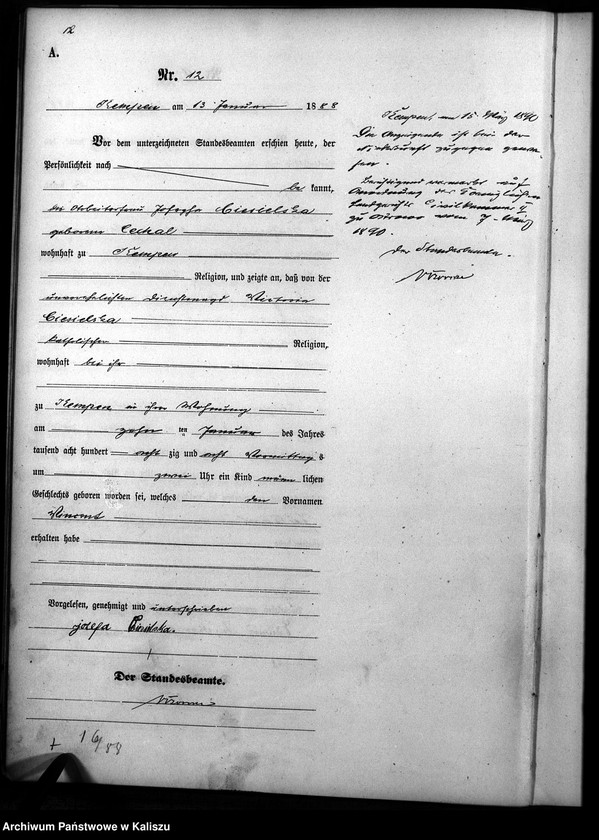 12
A.
Nr. 12
Kempen am 13 Januar 1888
Vor dem unterzeichneten Standesbeamten erschien heute, der
Persönlichkeit nach
bekannt,
die Arbeiterfrau Josepha Ciesielska
geborene
wohnhaft zu Kempen
Religion, und zeigte an, daß von der
unverehelichten Dienstmagd Victoria
Ciesielska
katholischer Religion,
wohnhaft bei ihr
zu Kempen in ihrer Wohnung
am zehn ten Januar des Jahres
tausend acht hundert acht zig und acht Vormittags
um zwei Uhr ein Kind männlichen
Geschlechts geboren worden sei, welches den Vornamen
erhalten habe
Vorgelesen, genehmigt und unterschrieben
Josefa Ciesielska.
Der Standesbeamte.
+ 16/88
Kempen, am 15. März 1890
Die Anzeigende ist bei der
Niederkunft zugegen gewe-
sen.
Berichtigend vermerkt auf
Anordnung des Königlichen
Landgerichts Civilkammer I
zu Ostrowo vom 7. März
1890.
Der Standesbeamte.
Archiwum Państwowe w Kaliszu